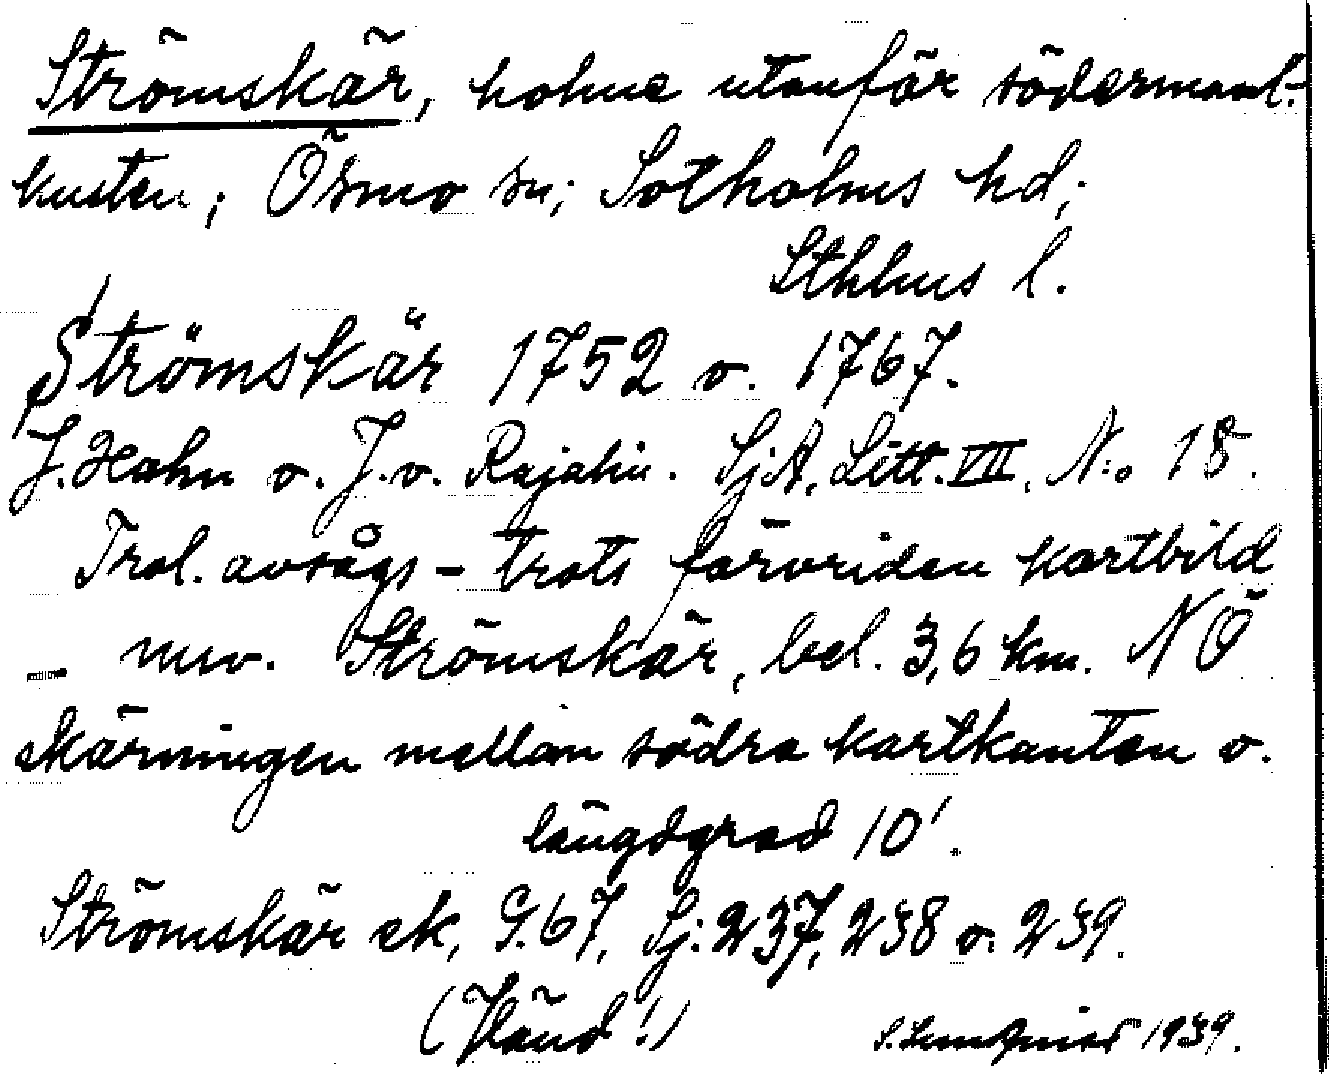 Strömskär, holme utanför södermanl.-
kusten; Ösmo sn; Sotholms hd;
Sthlms l.
Strömskär 1752 o. 1767.
J. Hahn o. J. v. Rajalin. SjA, Litt. VII, N:o 18.
Trol. avsågs - trots förvriden kartbild
- nuv. Strömskär, bel. 3,6 km. NÖ
skärningen mellan södra kartkanten o.
längdgrad 10'.
Strömskär ek, G. 67, Sj: 237, 238 o. 239.
(Vänd!) 1939.